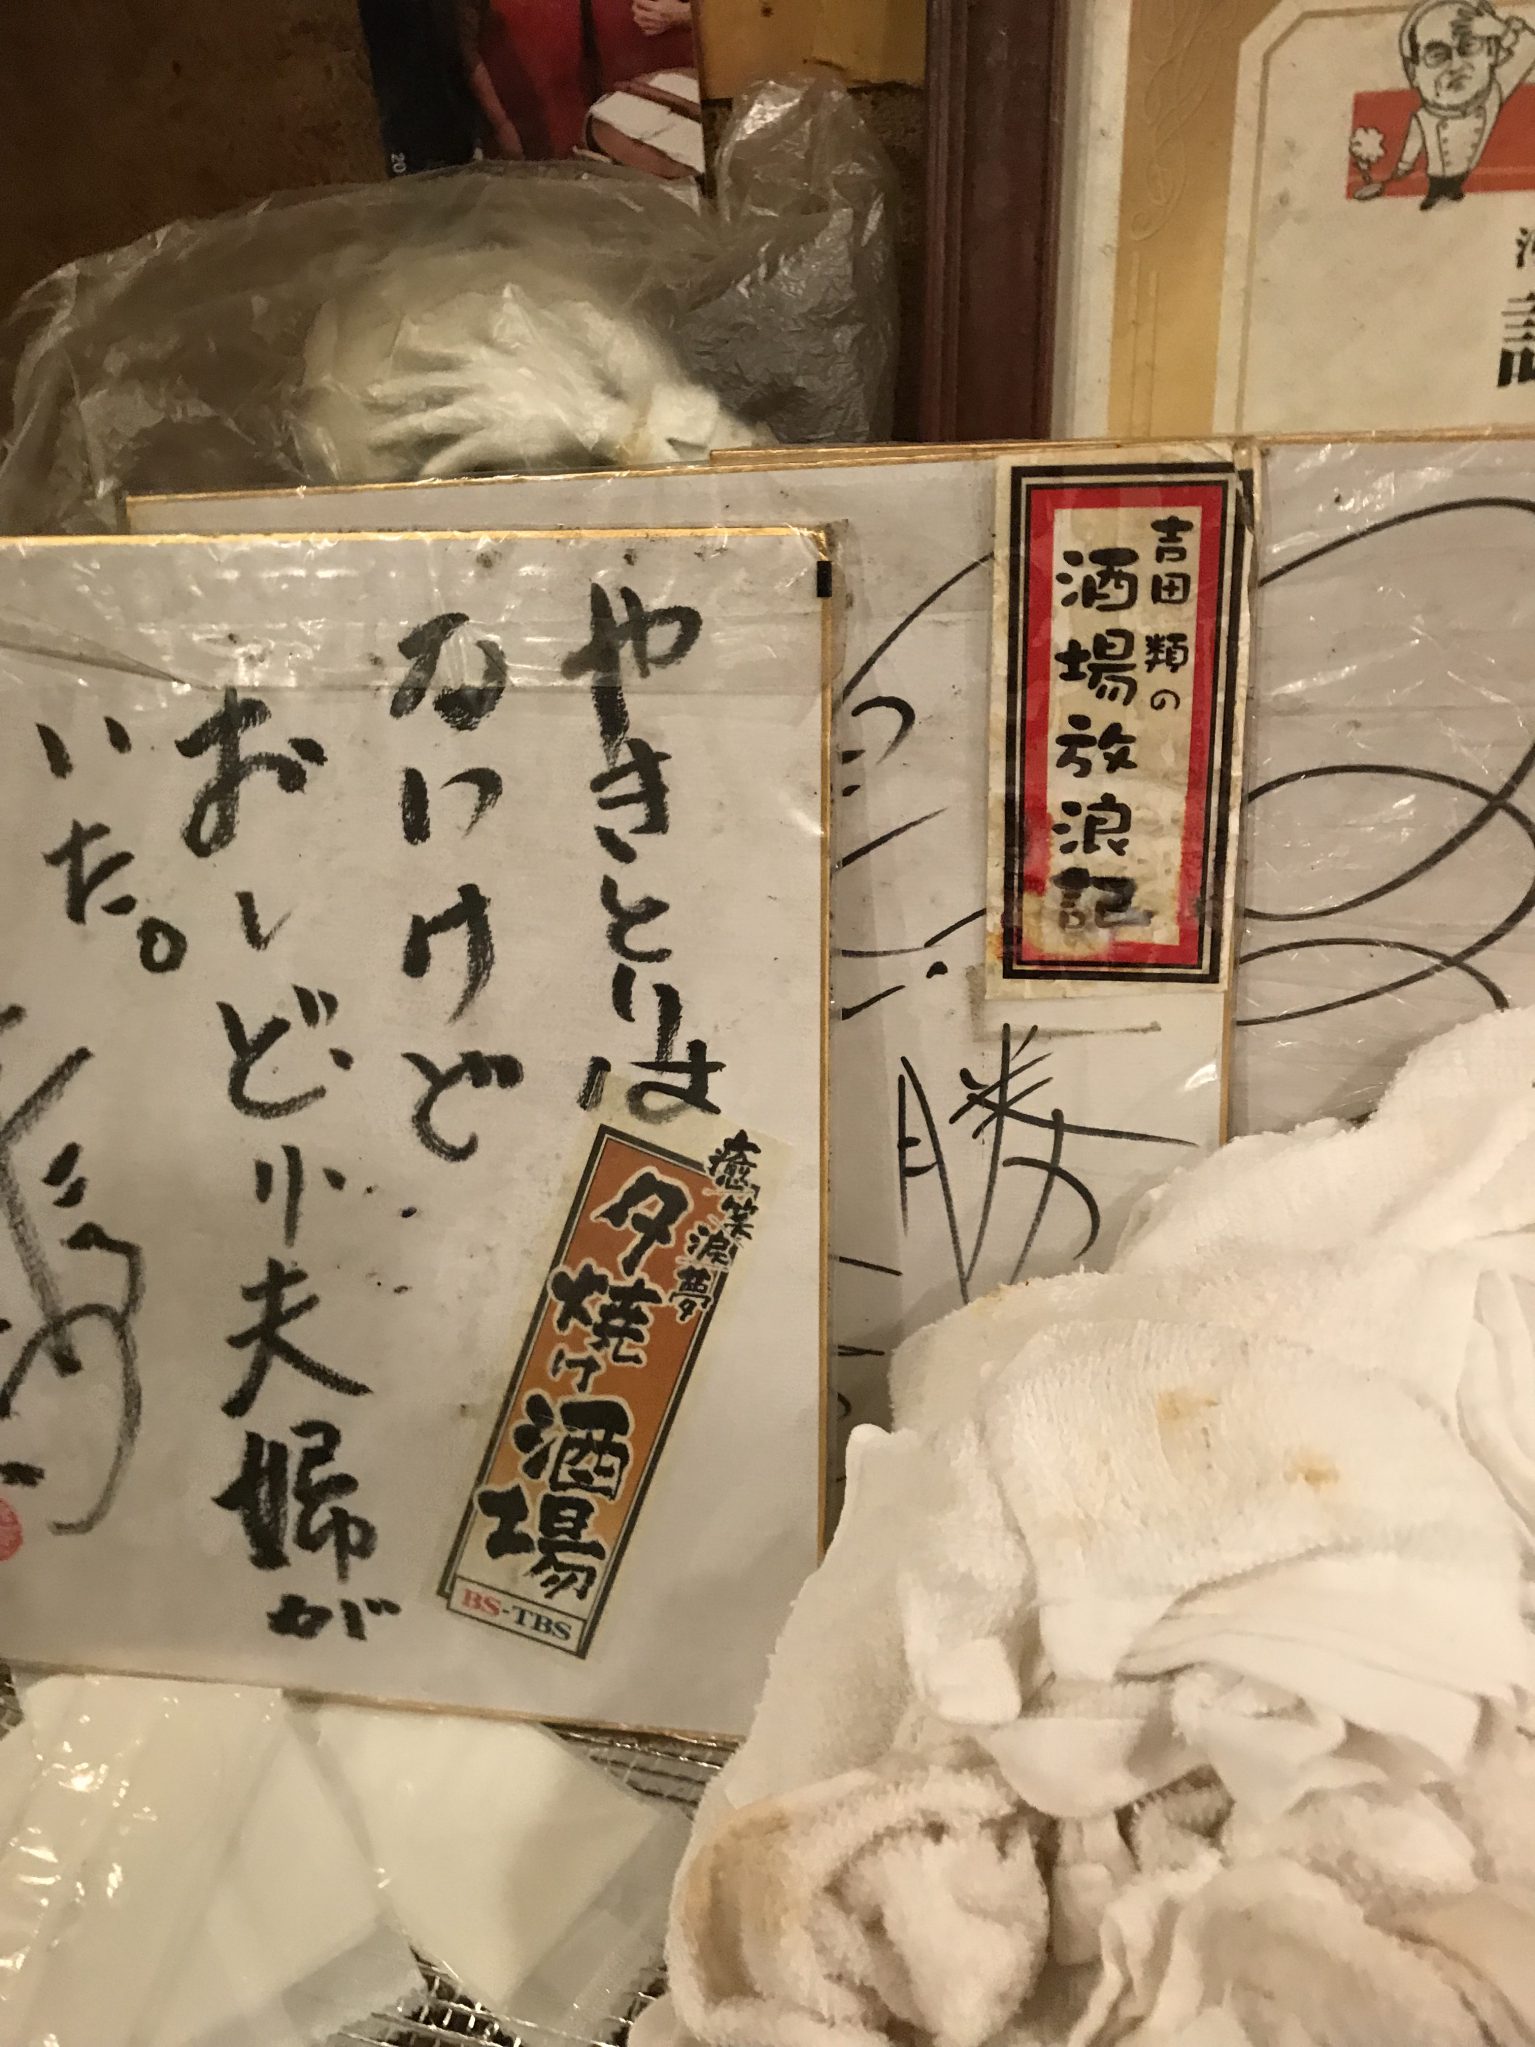 やきとりは
ないけど
おしどり夫婦が
いた。
癒 笑 涙 夢
夕焼け酒場
BS-TBS
吉田類の
酒場放浪記
勝
20